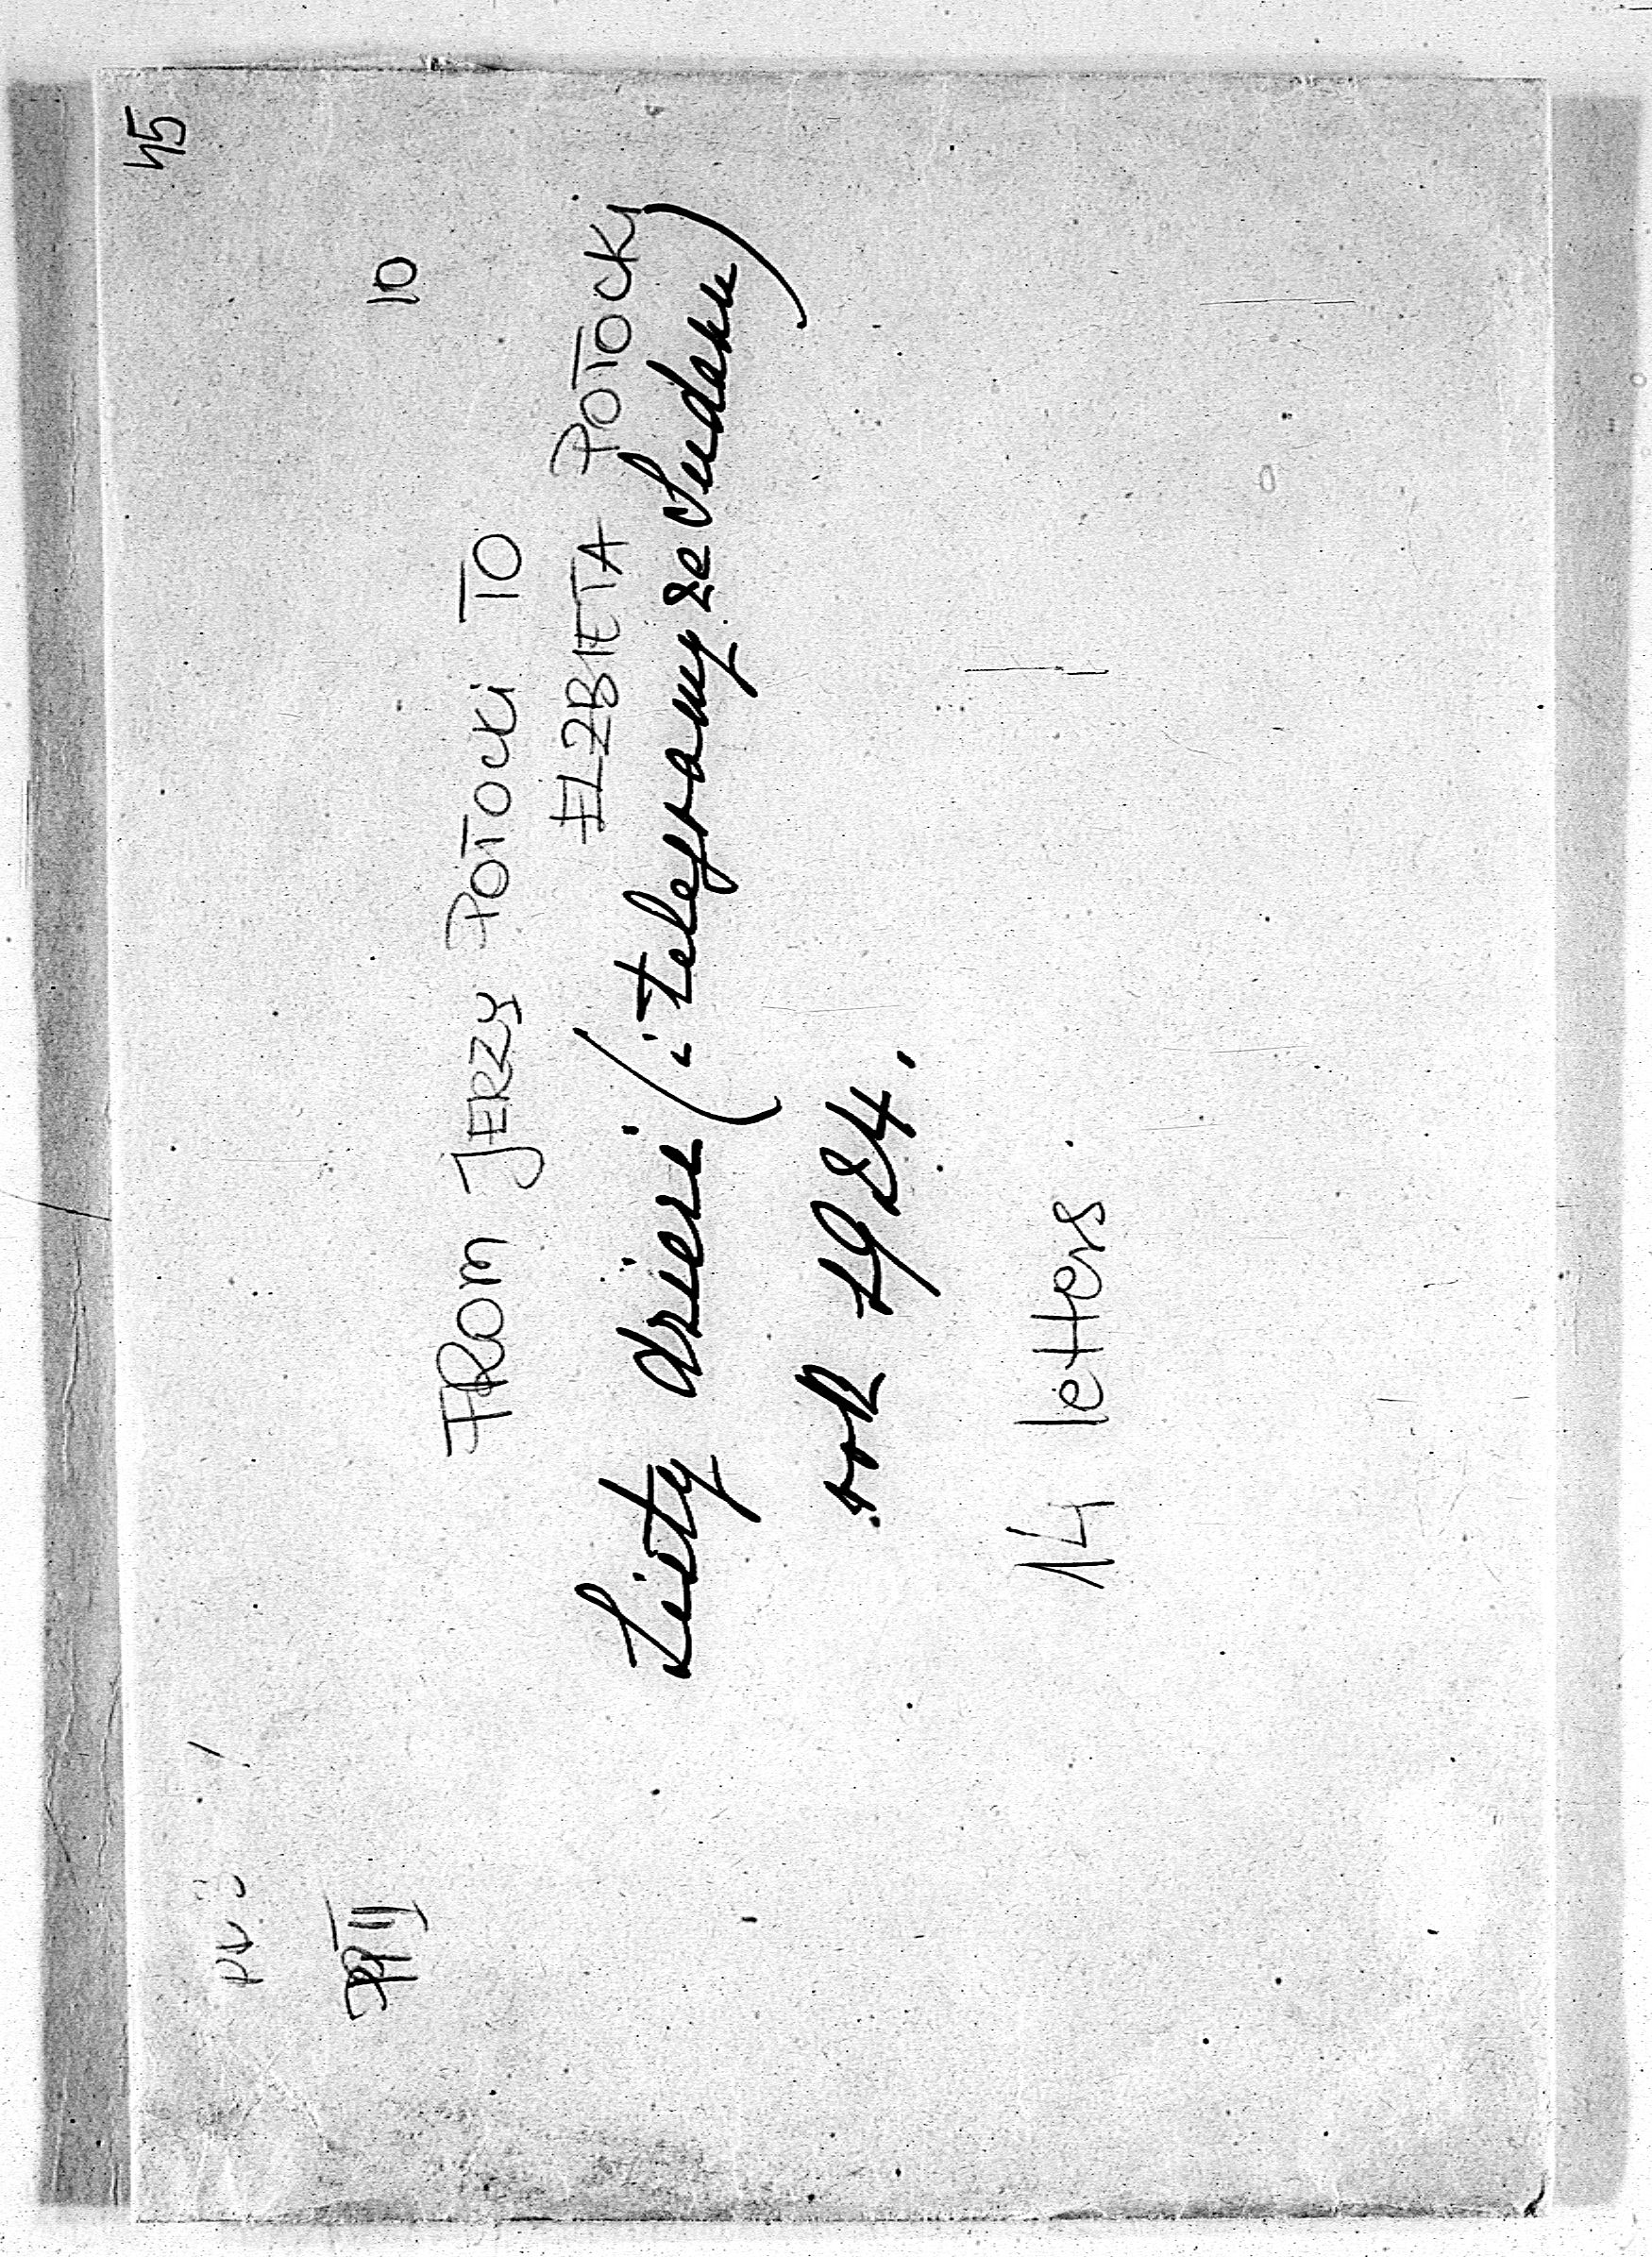 45
10
FROM JERZY POTOCKI TO
ELZBIETA POTOCKY
Listy dzieci (i telegramy ze Sudanu)
rok 1924.
14 letters